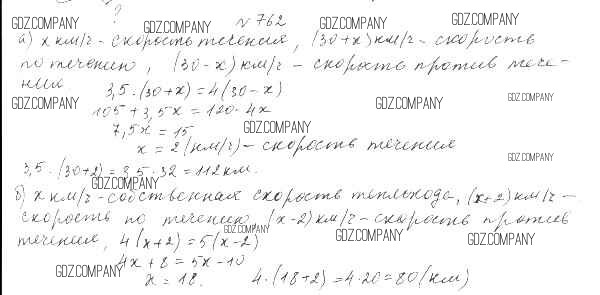 ?
GDZ.COMPANY GDZ.COMPANY № 762 GDZ.COMPANY GDZ.COMPANY
а) x км/ч - скорость течения, (30+x) км/ч - скорость
по течению, (30-x) км/ч - скорость против тече-
ния
3,5·(30+x)=4(30-x)
GDZ.COMPANY GDZ.COMPANY GDZ.COMPANY
105+3,5x=120-4x
7,5x=15
GDZ.COMPANY
x=2(км/ч) - скорость течения
GDZ.COMPANY
3,5·(30+2)=3,5·32=112км.
GDZ.COMPANY
б) x км/ч - собственная скорость теплохода, (x+2) км/ч -
скорость по течению, (x-2) км/ч - скорость против
GDZ.COMPANY GDZ.COMPANY GDZ.COMPANY
течения, 4(x+2)=5(x-2)
4x+8=5x-10
GDZ.COMPANY
x=18. 4·(18+2)=4·20=80(км)